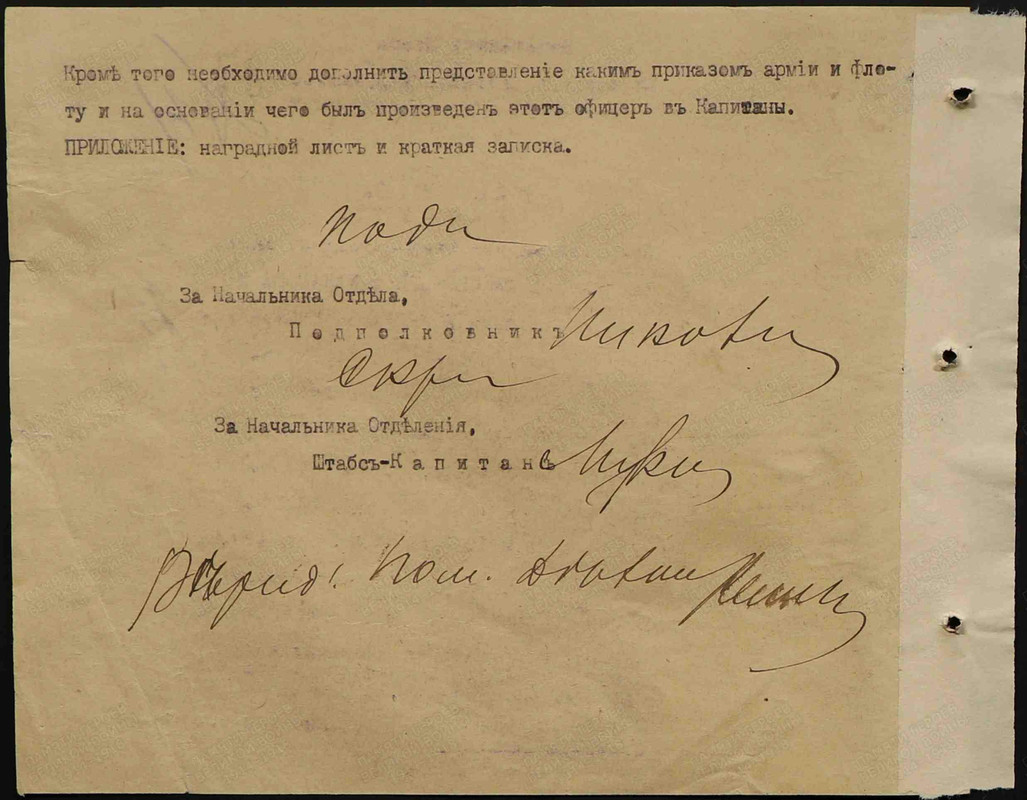 Кромѣ того необходимо дополнить представленіе какимъ приказомъ арміи и фло-
ту и на основаніи чего былъ произведенъ этотъ офицеръ въ Капитаны.
ПРИЛОЖЕНІЕ: наградной листъ и краткая записка.
За Начальника Отдѣла,
Подполковникъ
За Начальника Отдѣленія,
Штабсъ-Капитанъ
Вѣрно: Пом.